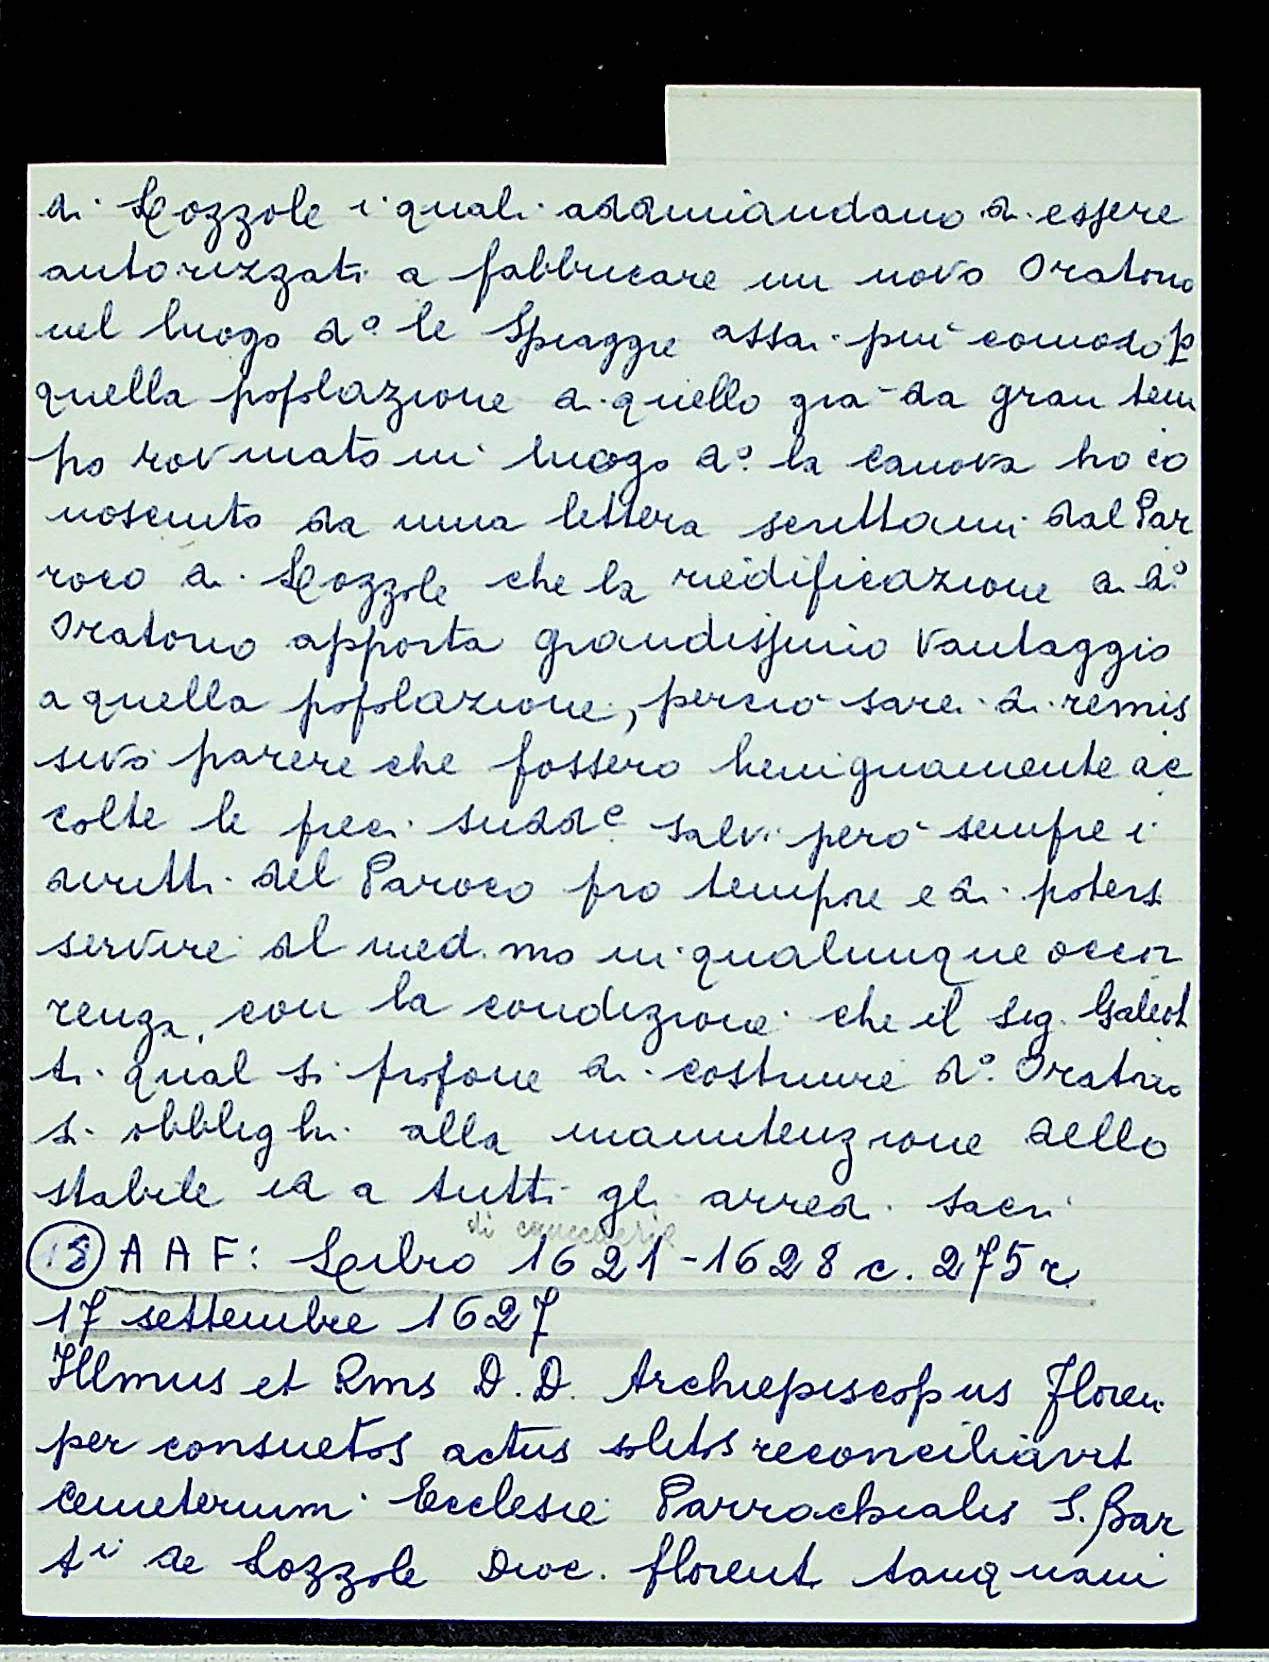 di Lozzole i quali addimandano di essere
autorizzati a fabbricare un novo Oratorio
nel luogo d.º le Spiagge assai più comodo p
quella popolazione di quello già da gran tem
po rovinato in luogo d.º la Canova ho co
nosciuto da una lettera scrittami dal Par
roco di Lozzole che la riedificazione di d.º
Oratorio apporta grandissimo vantaggio
a quella popolazione, perciò sarei di remis
sivo parere che fossero benignamente ac
colte le preci sudd.e salvi però sempre i
diritti del Paroco pro tempore e di potersi
servire al med.mo in qualunque occor
renza, con la condizione che il sig. Galeot
ti qual si propone di costruire d.º Oratorio
si obblighi alla manutenzione dello
stabile ed a tutti gli arredi sacri
di cancelleria
18 A A F: Libro 1621-1628 c. 275 r
17 settembre 1627
Illmus et Rms D. D. Archiepiscopus Floren.
per consuetos actus solitos reconciliavit
Cemeterium Ecclesie Parrochialis S. Bar
t.i de Lozzole Dioc. florent. tanquam